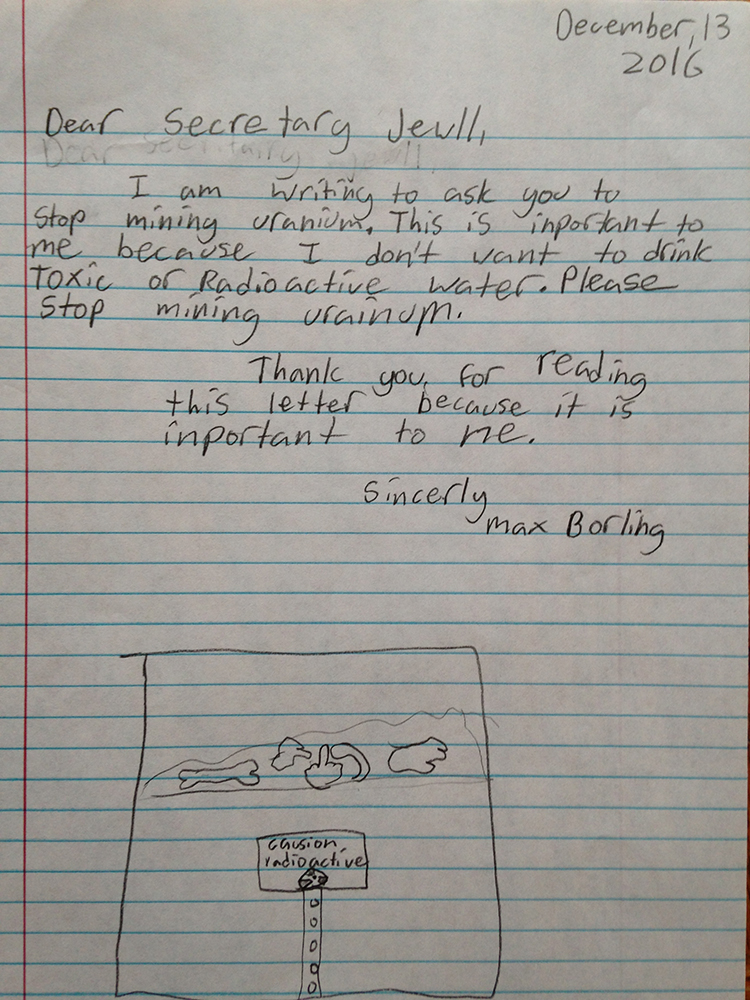 December, 13
2016
Dear Secretary Jewll,
Dear Secritairy Jewll,
I am writing to ask you to
stop mining uranium. This is inportant to
me because I don't want to drink
Toxic or Radioactive water. Please
stop mining urainum.
Thank you, for reading
this letter because it is
inportant to me.
Sincerly
max Borling
causion,
radioactive